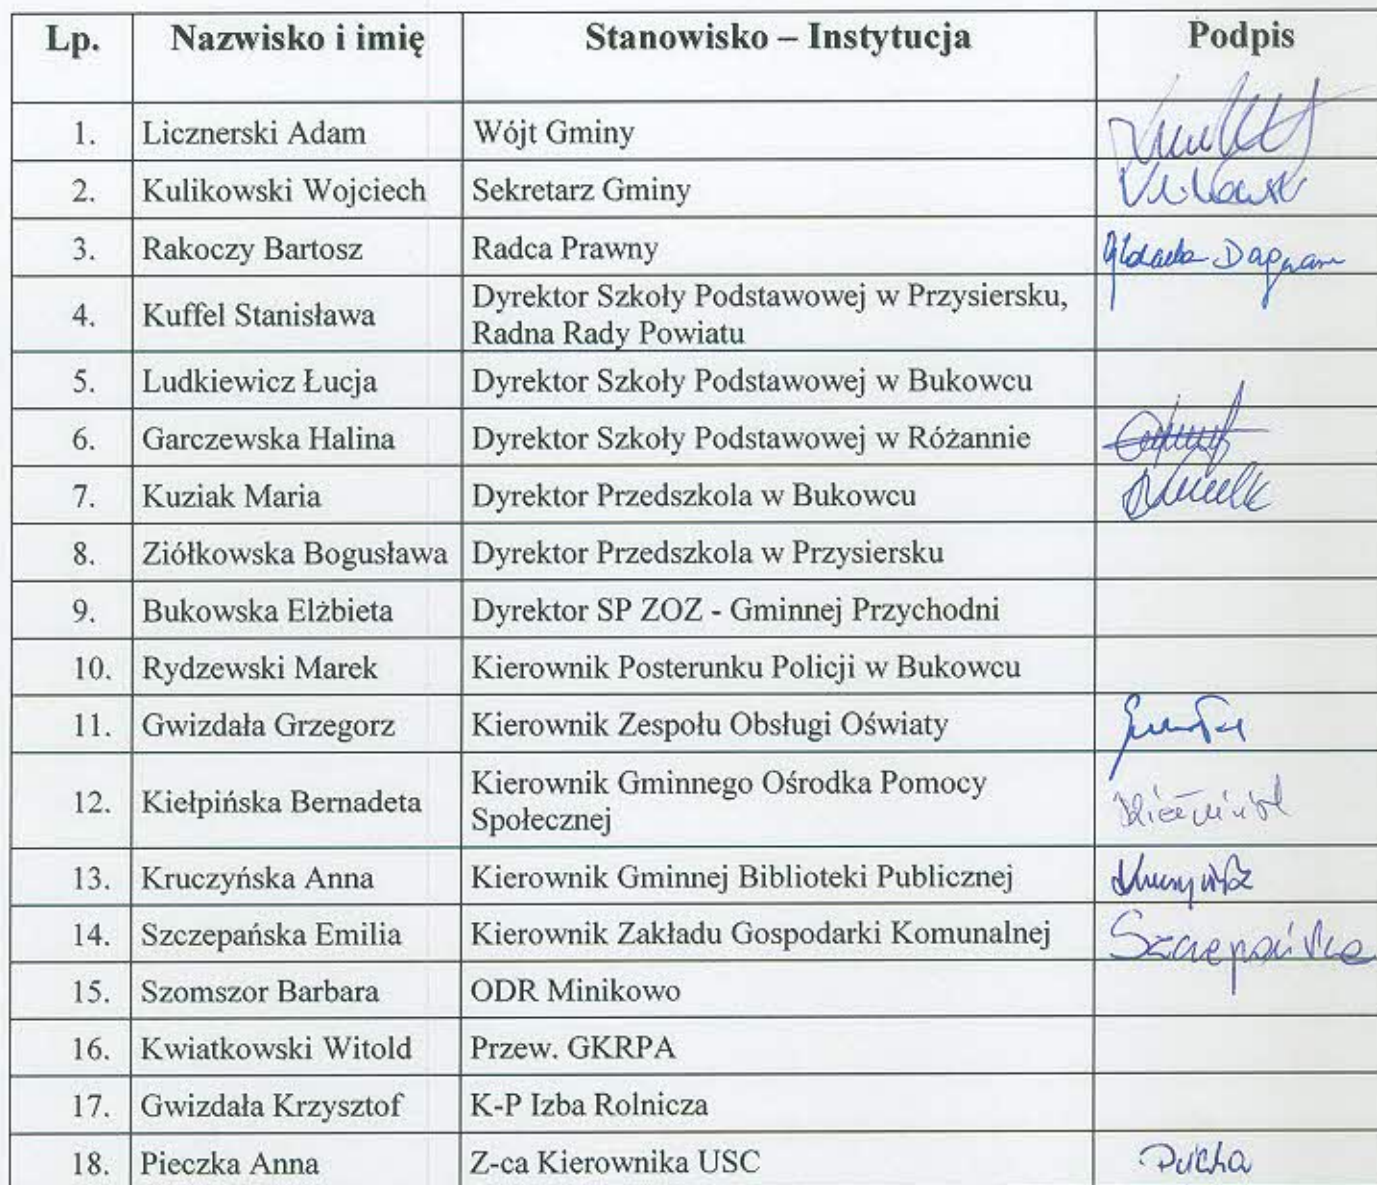 Lp. Nazwisko i imię Stanowisko – Instytucja Podpis
1. Licznerski Adam Wójt Gminy
2. Kulikowski Wojciech Sekretarz Gminy
3. Rakoczy Bartosz Radca Prawny
4. Kuffel Stanisława Dyrektor Szkoły Podstawowej w Przysiersku,
Radna Rady Powiatu
5. Ludkiewicz Łucja Dyrektor Szkoły Podstawowej w Bukowcu
6. Garczewska Halina Dyrektor Szkoły Podstawowej w Różannie
7. Kuziak Maria Dyrektor Przedszkola w Bukowcu
8. Ziółkowska Bogusława Dyrektor Przedszkola w Przysiersku
9. Bukowska Elżbieta Dyrektor SP ZOZ - Gminnej Przychodni
10. Rydzewski Marek Kierownik Posterunku Policji w Bukowcu
11. Gwizdała Grzegorz Kierownik Zespołu Obsługi Oświaty
12. Kiełpińska Bernadeta Kierownik Gminnego Ośrodka Pomocy
Społecznej
13. Kruczyńska Anna Kierownik Gminnej Biblioteki Publicznej
14. Szczepańska Emilia Kierownik Zakładu Gospodarki Komunalnej Szczepańska
15. Szomszor Barbara ODR Minikowo
16. Kwiatkowski Witold Przew. GKRPA
17. Gwizdała Krzysztof K-P Izba Rolnicza
18. Pieczka Anna Z-ca Kierownika USC